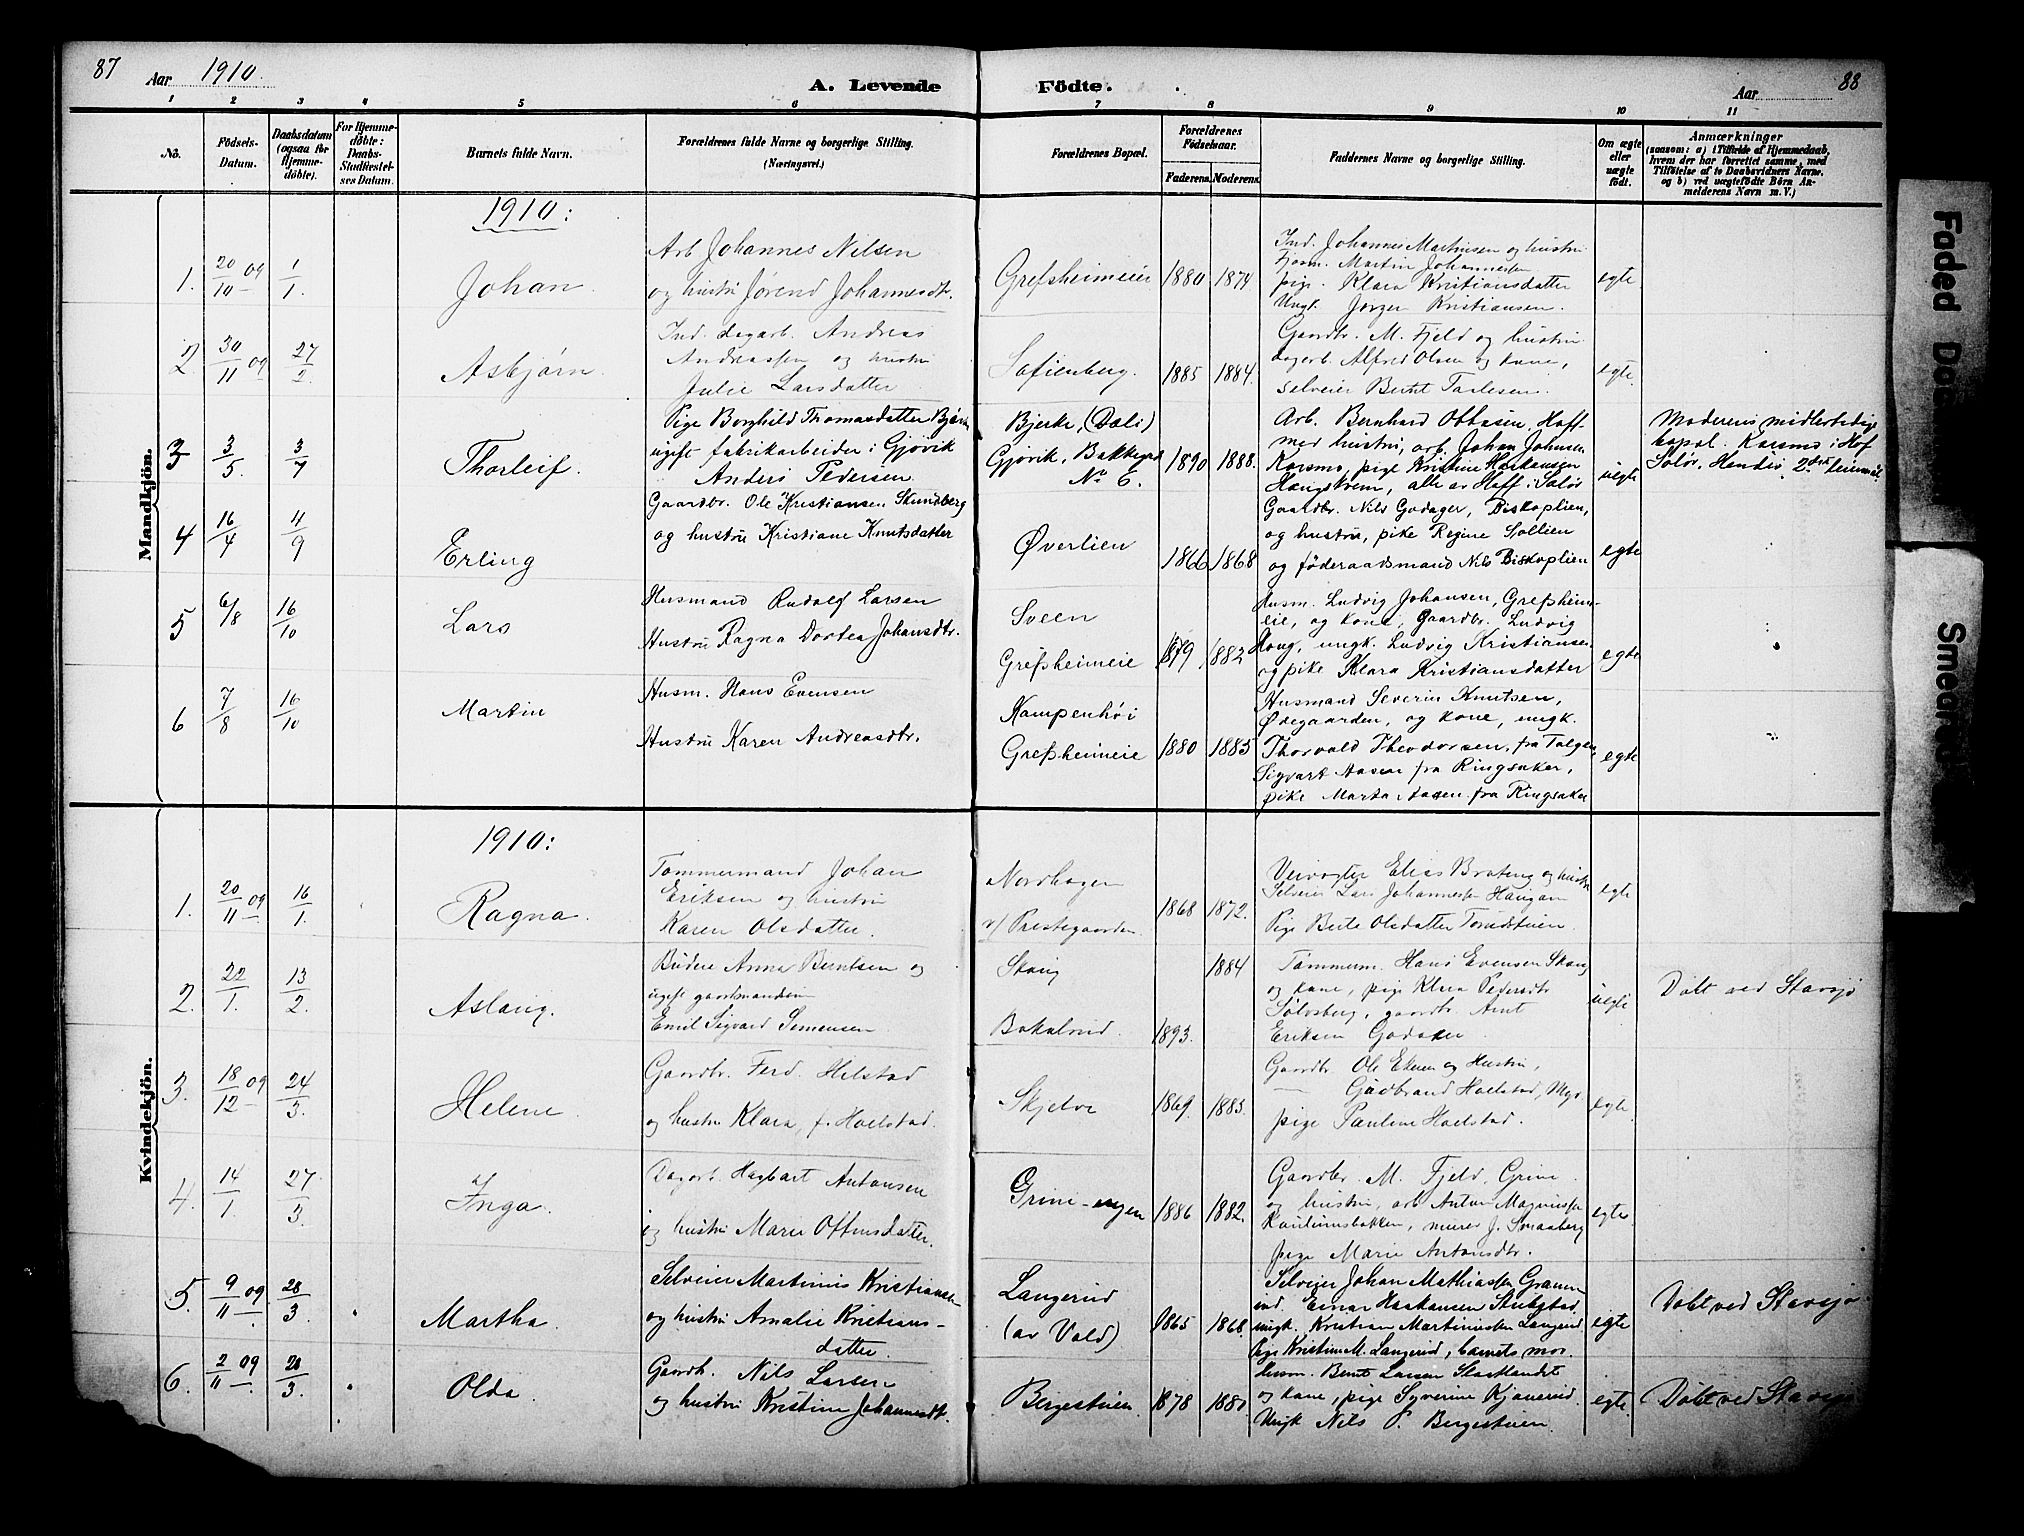 87 Aar 1910. A. Levende Födte. Aar 88
1 2 3 4 5 6 7 8 9 10 11
No.
Födsels-Datum.
Daabsdatum (ogsaa för Hjemme-döbte).
For Hjemme-döbte: Daabs-Stadfæstel-ses Datum.
Barnets fulde Navn.
Forældrenes fulde Navne og borgerlige Stilling. (Næringsvei.)
Forældrenes Bopæl.
Forældrenes Födselsaar.
Faderens. Moderens.
Faddernes Navne og borgerlige Stilling.
Om ægte eller uægte födt.
Anmærkninger
(saasom: a) i Tilfælde af Hjemmedaab,
hvem der har forrettet samme, med
Tilföielse af to Daabsvidners Navne,
og b) ved uægtefödte Börn An-
melderens Navn m. V.)
Mandkjön.
1910:
1. 20/10 09 1/1. Johan.
Arb Johannes Nilsen
og hustri Jørend Johannesdt.
Grefsheimeier 1880 1874
Ind. Johannes Martinsen og hustri
Martin Johannessen
pige. Klara Kristiansdatter
Ungk. Jørgen Kristiansen
egte
2 30/11 09 27/2. Asbjørn.
Ind. dagarb. Andreas
Andreassen og hustri
Julie Larsdatter
Sofienberg. 1885 1884.
Gaardbr. M. Fjeld og hustri
dagarb. Alfred Olsen og kone,
selveier Bernt Tarlesen.
egte.
3 3/5 3/7 Thorleif.
Pige Borghild Thomasdatter Bjerke
ugift fabrikarbeider i Gjövik
Anders Pedersen
Bjerke, (Dæli)
Gjövik, Bakkegd
No 6.
1890 1888.
Arb. Bernhard Ottosen, Hoff-
med hustru, arb. Johan Johnsen
Karsmo, pige Kristine Haakansen
Haugskvem, alle av Hoff i Solör
uegte
Moderens midlertidige
kapel. Karsmo i Hof
Solör.
4 16/4 4/9 Erling
Gaardbr. Ole Kristiansen Skundberg
og hustru Kristiane Knutsdatter
Øverlien 1866 1868
Gaardbr. Nils Godager, Biskoplien,
og hustru, pike Regine Sollien
og föderaadsmand Nils Biskoplien
egte
5 6/8 16/10 Lars
Husmand Rudolf Larsen
Hustru Ragna Dortea Johansdtr.
Sveen
Grefsheimeie 1879 1882
Husm. Ludvig Johansen, Grefsheim-
eie, og kone, Gaardbr. Ludvig
Haug, ungk. Ludvig Kristiansen
og pike Klara Kristiansdatter
egte
6 7/8 16/10 Martin
Husm. Hans Evensen
Hustru Karen Andreasdtr.
Kampenhöi
Grefsheimeie 1880 1885
Husmand Severin Knutsen,
Ødegaarden, og kone, ungk.
Thorvald Theodorsen, fra Tolgen,
Sigvart Aasen fra Ringsaker,
pike Marta Aasen fra Ringsaker
egte
Kvindekjön.
1910:
1. 20/11 09 16/1. Ragna.
Tømmermand Johan
Eriksen og hustru
Karen Olsdatter.
Nordhagen
v/ Prestegaarden 1868 1872.
Veivogter Elias Brateng og hustr
Selveier Lars Johannessen Haugan
Pige Berte Olsdatter
egte
2. 22/1. 13/2. Aslaug.
Budeie Anna Berntsen og
ugift gaardmandssøn
Emil Sigvard Simensen
Skaug 1884
Bakalrud. 1893.
Tømmerm. Hans Evensen Skaug
og kone, pige Klara Pedersdtr
Sølvsberg, gaardbr. Arnt
Eriksen Godager.
uegte
Døbt ved Stavsjø
3. 18/12 09 24/3. Helene.
Gaardbr. Ferd. Hilstad
og hustru Klara, f. Hoelstad.
Skjelve 1869. 1883.
Gaardbr. Ole Ekeren og Hustru
— Gudbrand Hoelstad,
pige Pauline Hoelstad.
egte.
4. 14/1. 27/3. Inga.
Dagarb. Hagbart Antonsen
og hustru Marie Offensdatter.
Grini-engen 1886 1882.
Gaardbr. M. Fjeld, Grini
og hustru, arb Anton Magnussen
murer J. Smaaberg
pige Marie Antonsdtr.
egte.
5. 9/11 09 28/3. Martha.
Selveier Martinius Kristiansen
og hustru Amalie Kristians-
datter.
Langerud
(av Vold) 1865 1868.
Selveier Johan Mathiassen
Einar Haakansen
ungk. Kristian Martiniussen Langerud
Pige Kristine M. Langerud, barnets mor.
egte
Døbt ved Stavsjø
6. 2/11 09 28/3. Olda.
Gaardb. Nils Larsen
og hustru Kristine Johannesdt.
Bergestuen. 1878 1880.
Husm. Bernt Larsen
og kone, pige Syverine Kjønerud
Ungk Nils P. Bergestuen.
egte.
Døbt ved Stavsjø
Faded Do
Smeared